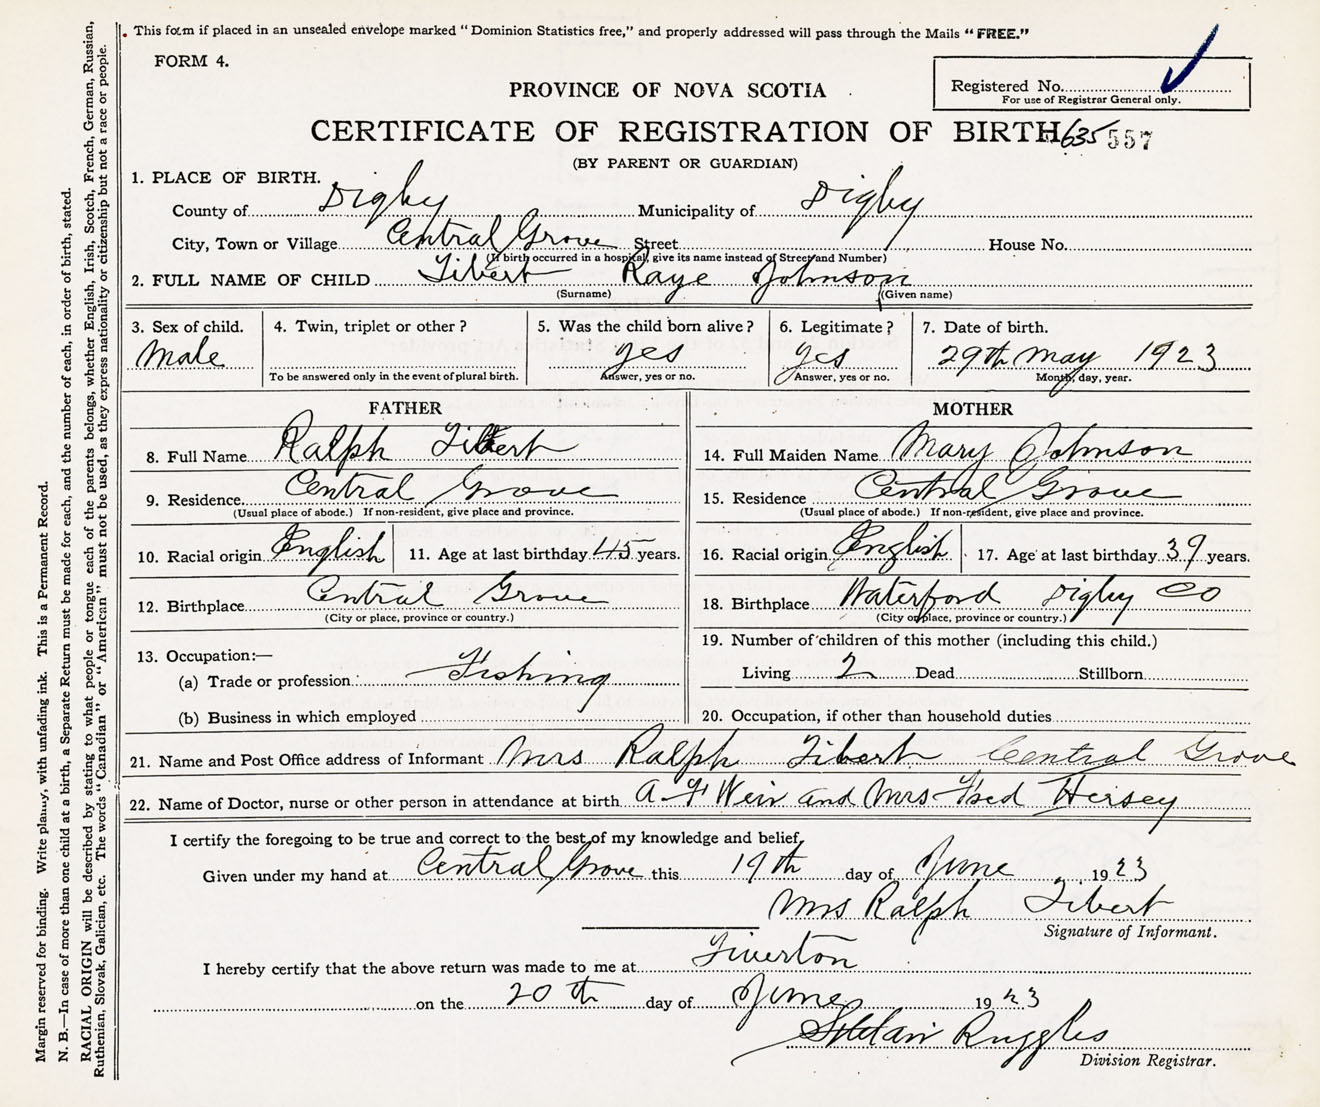 This form if placed in an unsealed envelope marked "Dominion Statistics free," and properly addressed will pass through the Mails "FREE."
FORM 4.
Registered No.
For use of Registrar General only.
PROVINCE OF NOVA SCOTIA
CERTIFICATE OF REGISTRATION OF BIRTH 635 557
(BY PARENT OR GUARDIAN)
1. PLACE OF BIRTH.
County of Digby Municipality of Digby
City, Town or Village Central Grove Street House No.
(If birth occurred in a hospital, give its name instead of Street and Number)
2. FULL NAME OF CHILD Tibert Raye Johnson
(Surname) (Given name)
3. Sex of child. 4. Twin, triplet or other? 5. Was the child born alive? 6. Legitimate? 7. Date of birth.
Male yes yes 29th May 1923
To be answered only in the event of plural birth. Answer, yes or no. Answer, yes or no. Month, day, year.
FATHER
8. Full Name Ralph Tibert
9. Residence Central Grove
(Usual place of abode.) If non-resident, give place and province.
10. Racial origin English 11. Age at last birthday 45 years.
12. Birthplace Central Grove
(City or place, province or country.)
13. Occupation:—
(a) Trade or profession Fishing
(b) Business in which employed
MOTHER
14. Full Maiden Name Mary Johnson
15. Residence Central Grove
(Usual place of abode.) If non-resident, give place and province.
16. Racial origin English 17. Age at last birthday 39 years.
18. Birthplace Waterford Digby Co
(City or place, province or country.)
19. Number of children of this mother (including this child.)
Living 2 Dead Stillborn
20. Occupation, if other than household duties
21. Name and Post Office address of Informant Mrs Ralph Tibert Central Grove
22. Name of Doctor, nurse or other person in attendance at birth A F Weir and Mrs Fred Hersey
I certify the foregoing to be true and correct to the best of my knowledge and belief,
Given under my hand at Central Grove this 19th day of June 1923
Mrs Ralph Tibert
Signature of Informant.
I hereby certify that the above return was made to me at Tiverton
on the 20th day of June 1923
Ruggles
Division Registrar.
Margin reserved for binding. Write plainly, with unfading ink. This is a Permanent Record.
N. B.—In case of more than one child at a birth, a Separate Return must be made for each, and the number of each, in order of birth, stated.
RACIAL ORIGIN will be described by stating to what people or tongue each of the parents belongs, whether English, Irish, Scotch, French, German, Russian,
Ruthenian, Slovak, Galician, etc. The words "Canadian" or "American" must not be used, as they express nationality or citizenship but not a race or people.